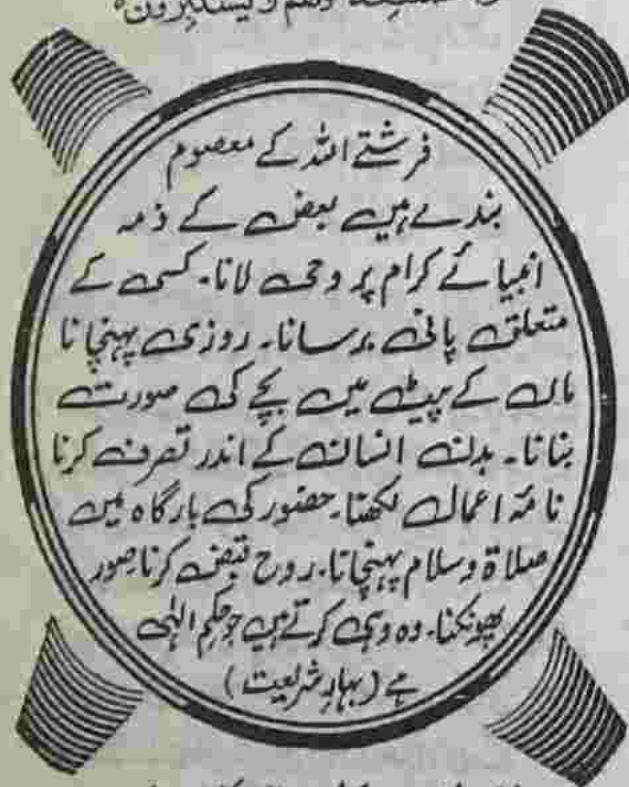 وهم لا يستكبرون
فرشتے اللہ کے معصوم
بندے ہیں بعض کے ذمہ
انبیائے کرام پر وحی لانا۔ کسی کے
متعلق پانی برسانا۔ روزی پہنچانا
ماں کے پیٹ میں بچے کی صورت
بنانا۔ بدن انسان کے اندر تصرف کرنا
نامۂ اعمال لکھنا۔ حضور کی بارگاہ میں
صلاۃ و سلام پہنچانا۔ روح قبض کرنا۔ صور
پھونکنا۔ وہ وہی کرتے ہیں جو حکم الٰہی
ہے (بہار شریعت)